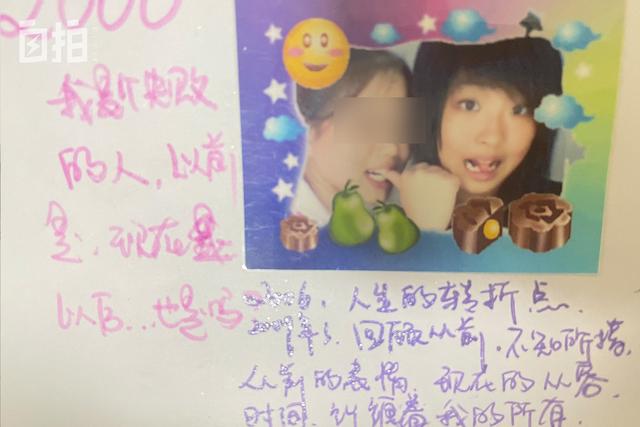 自拍
2000
我是个失败
的人，以前
是．现在是．
以后...也是吗？
2006．人生的转折点．
回顾从前．不知所措．
从前的表情．现在的从容
时间．纠缠着我的所有．